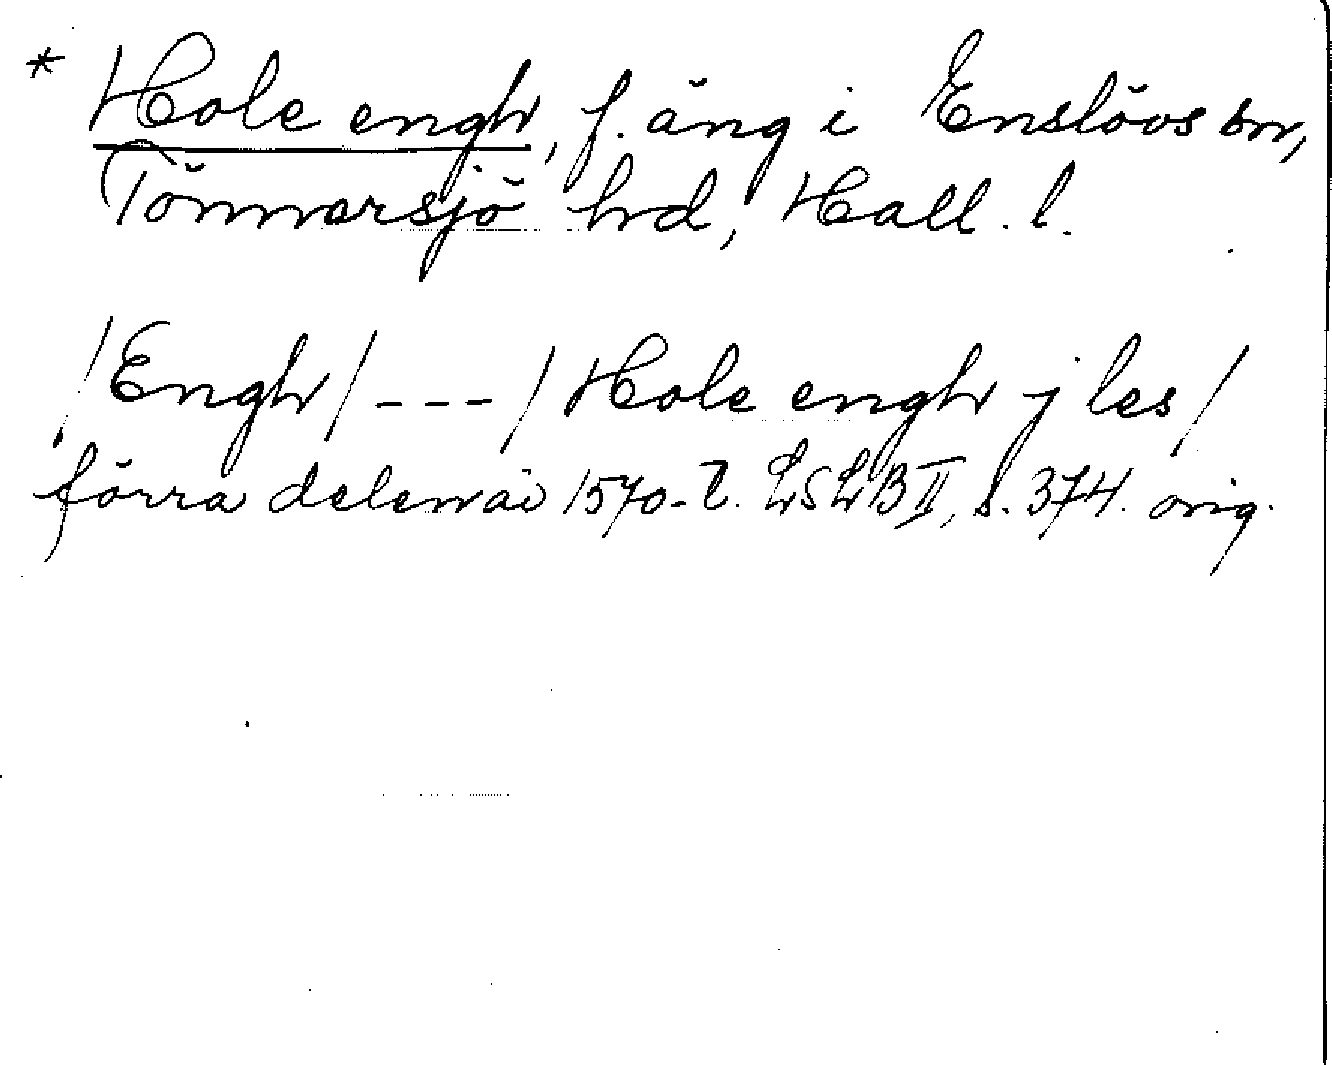 * Hole engh, f. äng i Enslövs sn,
Tönnersjö hd, Hall. l.
/Engh/ --- / Hole engh j les /
förra delen av 1570-t. LSLB II, s. 374. orig.